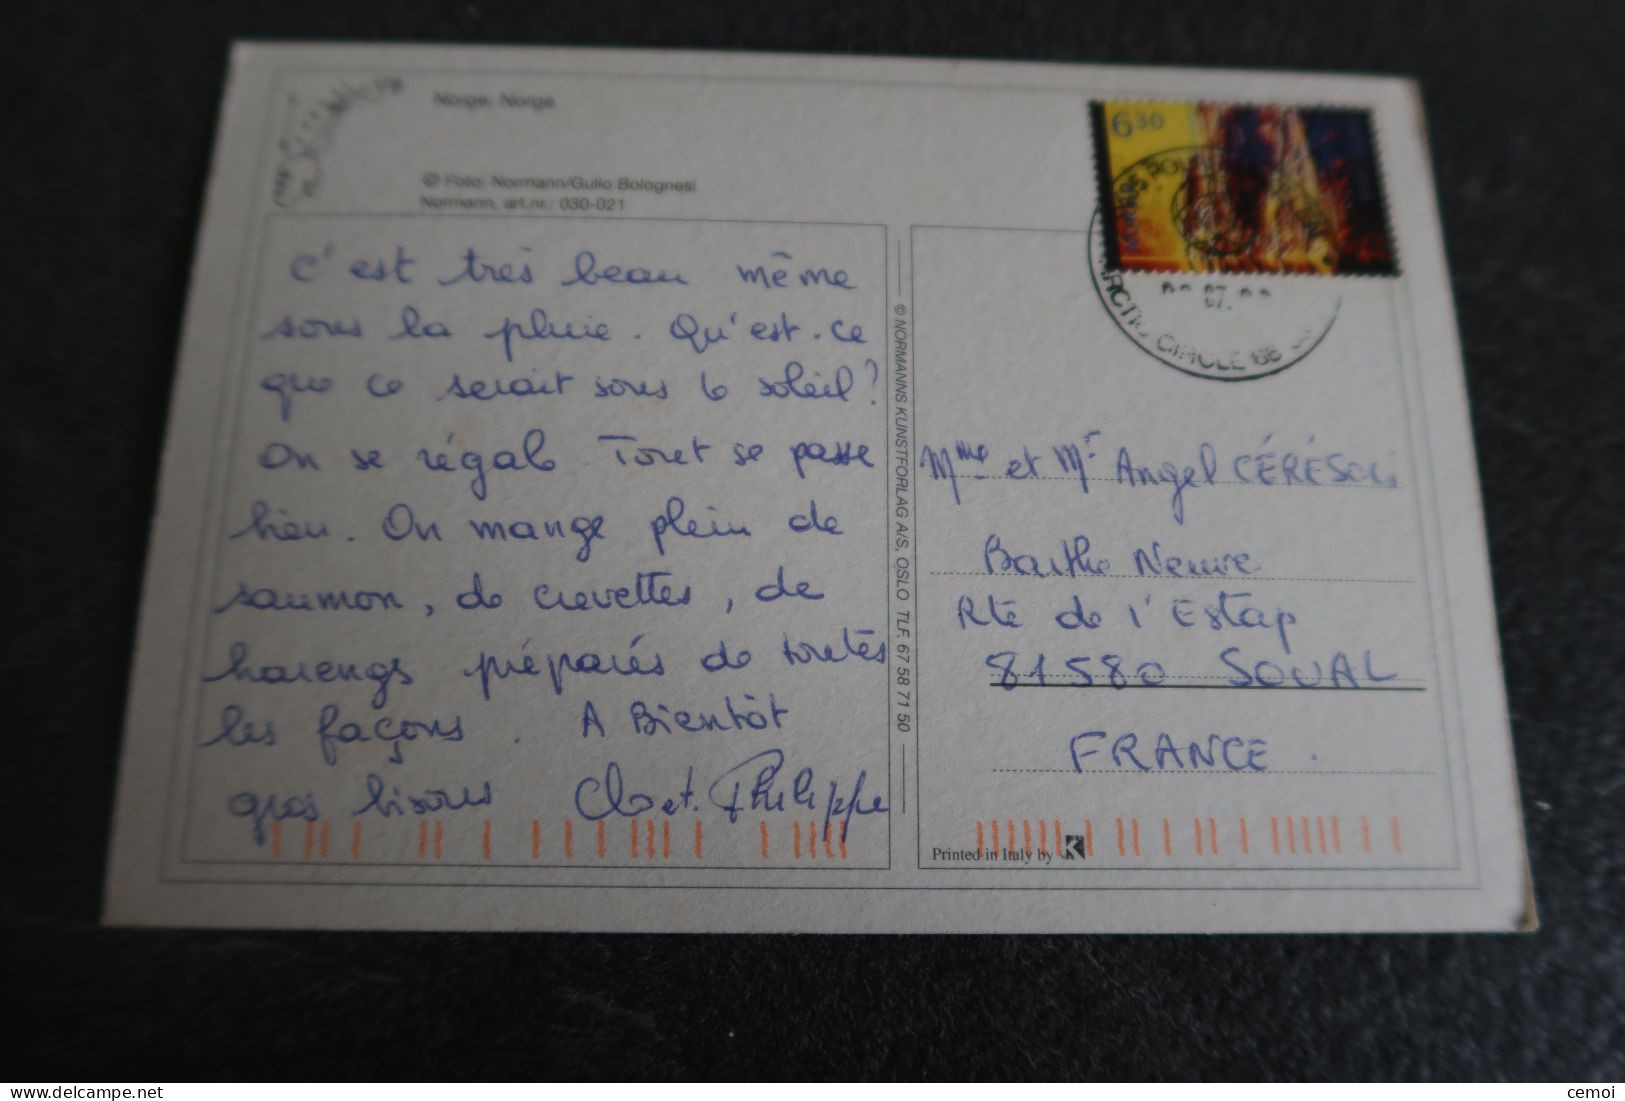 Norge. Norge
© Foto: Normann/Gulio Bolognesi
Normann, art.nr.: 030-021
C'est très beau même
sous la pluie. Qu'est-ce
que ce serait sous le soleil?
On se régale. Tout se passe
bien. On mange plein de
saumon, de crevettes, de
harengs préparés de toutes
les façons. A Bientôt
gros bisous Clo et Philippe
© NORMANNS KUNSTFORLAG A/S, OSLO TLF. 67 58 71 50
6 30
ARCTIC CIRCLE 66
07.
Mme et Mr Angel CÉRÉSOLI
Barthe Neuve
Rte de l'Estap
81580 SOUAL
FRANCE.
Printed in Italy by K
cemoi